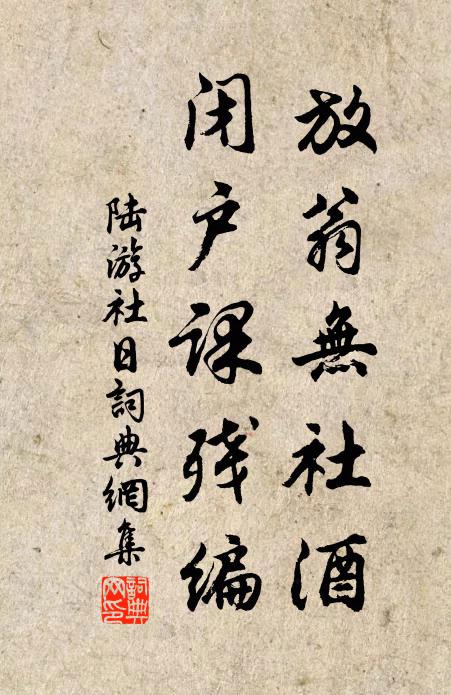 放翁無社酒
闭户课残编
陆游社日詞典網集
詞典网印